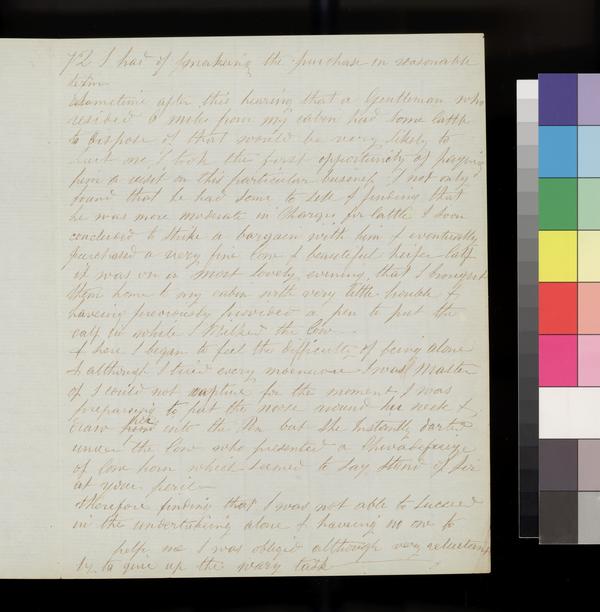 72 I had of making the purchase on reasonable
term
Sometime after this hearing that a Gentleman who
resided 6 miles from my cabin had some cattle
to dispose of that would be very likely to
suit me I took the first opportunity of paying
him a visit on this particular business I not only
found that he had some to sell & finding that
he was more moderate in Charges for Cattle I soon
concluded to strike a bargain with him & eventually
purchased a very fine Cow & beautiful heifer Calf
it was on a most lovely evening that I brought
them home to my cabin with very little trouble &
haveing previously provided a pen to put the
calf in while I Milked the Cow
& here I began to feel the difficulty of being alone
& although I tried every manuvre I was Master
of I could not capture for the moment I was
preparing to put the noose round her neck &
draw her into the Pen but she Instantly darted
under the Cow who presented a
of Cow horn which seemed to say Stand off Sir
at your peril
therefore finding that I was not able to succeed
in the undertaking alone & having no one to
help me I was obliged although very reluctant
ly to give up the task